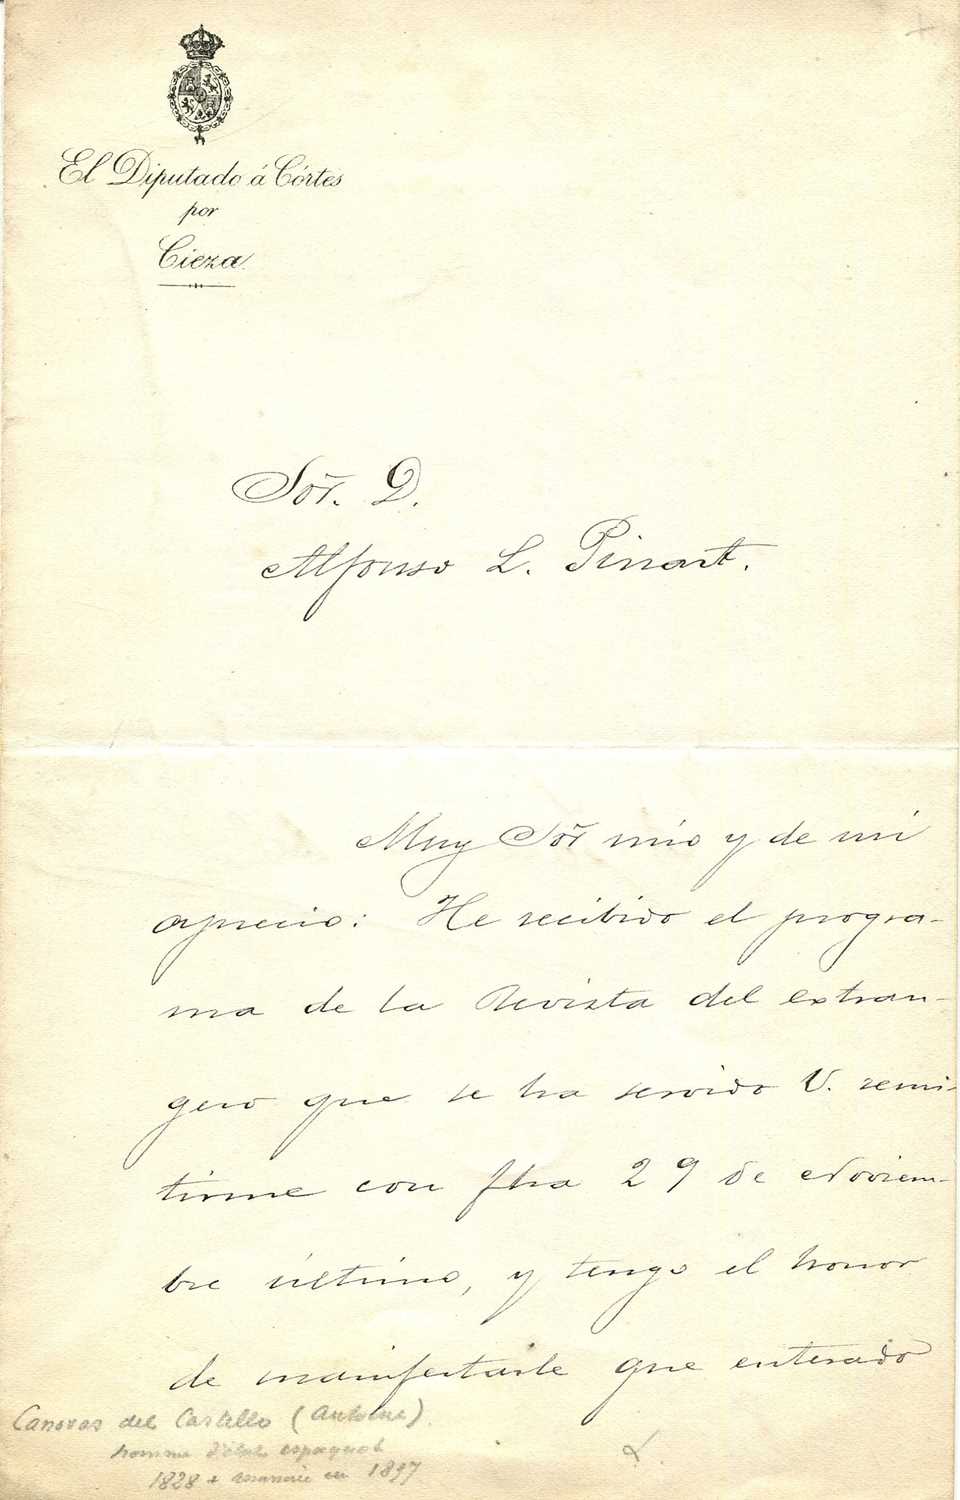 El Diputado á Córtes
por
Cieza
Sor. D.
Alfonso L. Pinart.
Muy Sor mio y de mi
aprecio: He recibido el progra-
ma de la Revista del extran-
gero que se ha servido V. remi-
tirme con fha 29 de Noviem-
bre último, y tengo el honor
de manifestarle que enterado
Canovas del Castillo (Antoine).
homme d'état espagnol
1828 + assassiné en 1897